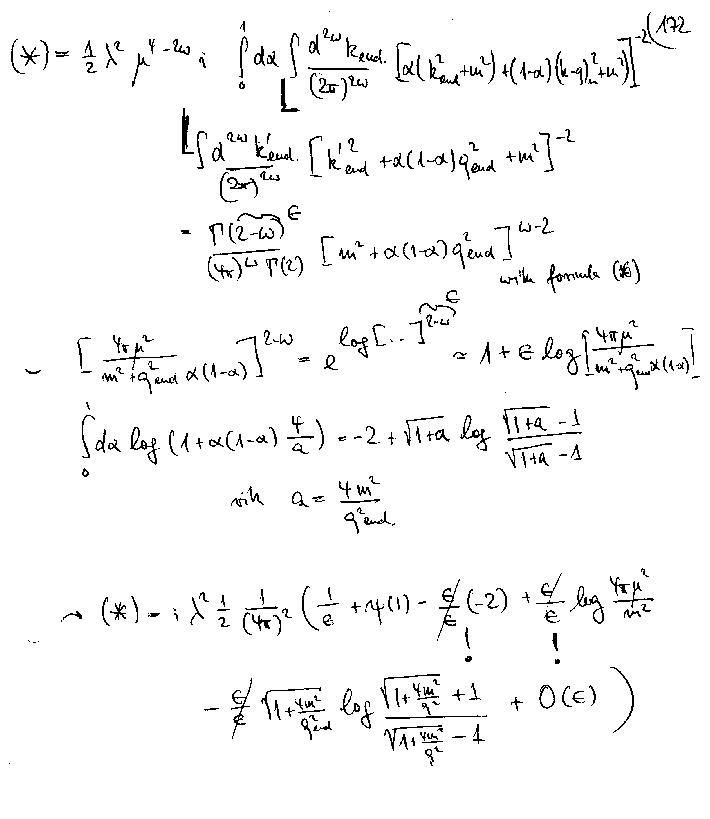 (172
(*) = 1/2 λ² μ^{4-2ω} i ∫₀¹ dα ∫ d^{2ω}k_{eucl.}/(2π)^{2ω} [α(k²_{eucl}+m²)+(1-α)((k-q)²_{eu}+m²)]^{-2}
∫ d^{2ω}k'_{eucl.}/(2π)^{2ω} [k'²_{eucl} + α(1-α)q²_{eucl} + m²]^{-2}
= Γ(2-ω)^{ϵ}/((4π)^ω Γ(2)) [m² + α(1-α)q²_{eucl}]^{ω-2}
with formula (16)
[4πμ²/(m²+q²_{eucl} α(1-α))]^{2-ω} = e^{log[..]^{2-ω}} ϵ ≃ 1 + ϵ log[4πμ²/(m²+q²_{eucl}α(1-α))]
∫₀¹ dα log (1+α(1-α) 4/a) = -2 + √(1+a) log (√(1+a) - 1)/(√(1+a) - 1)
with a = 4m²/q²_{eucl.}
→ (*) = i λ² 1/2 1/(4π)² (1/ϵ + ψ(1) - ϵ/ϵ (-2) + ϵ/ϵ log 4πμ²/m²
! !
- ϵ/ϵ √(1+4m²/q²_{eucl}) log (√(1+4m²/q²) + 1)/(√(1+4m²/q²) - 1) + O(ϵ) )